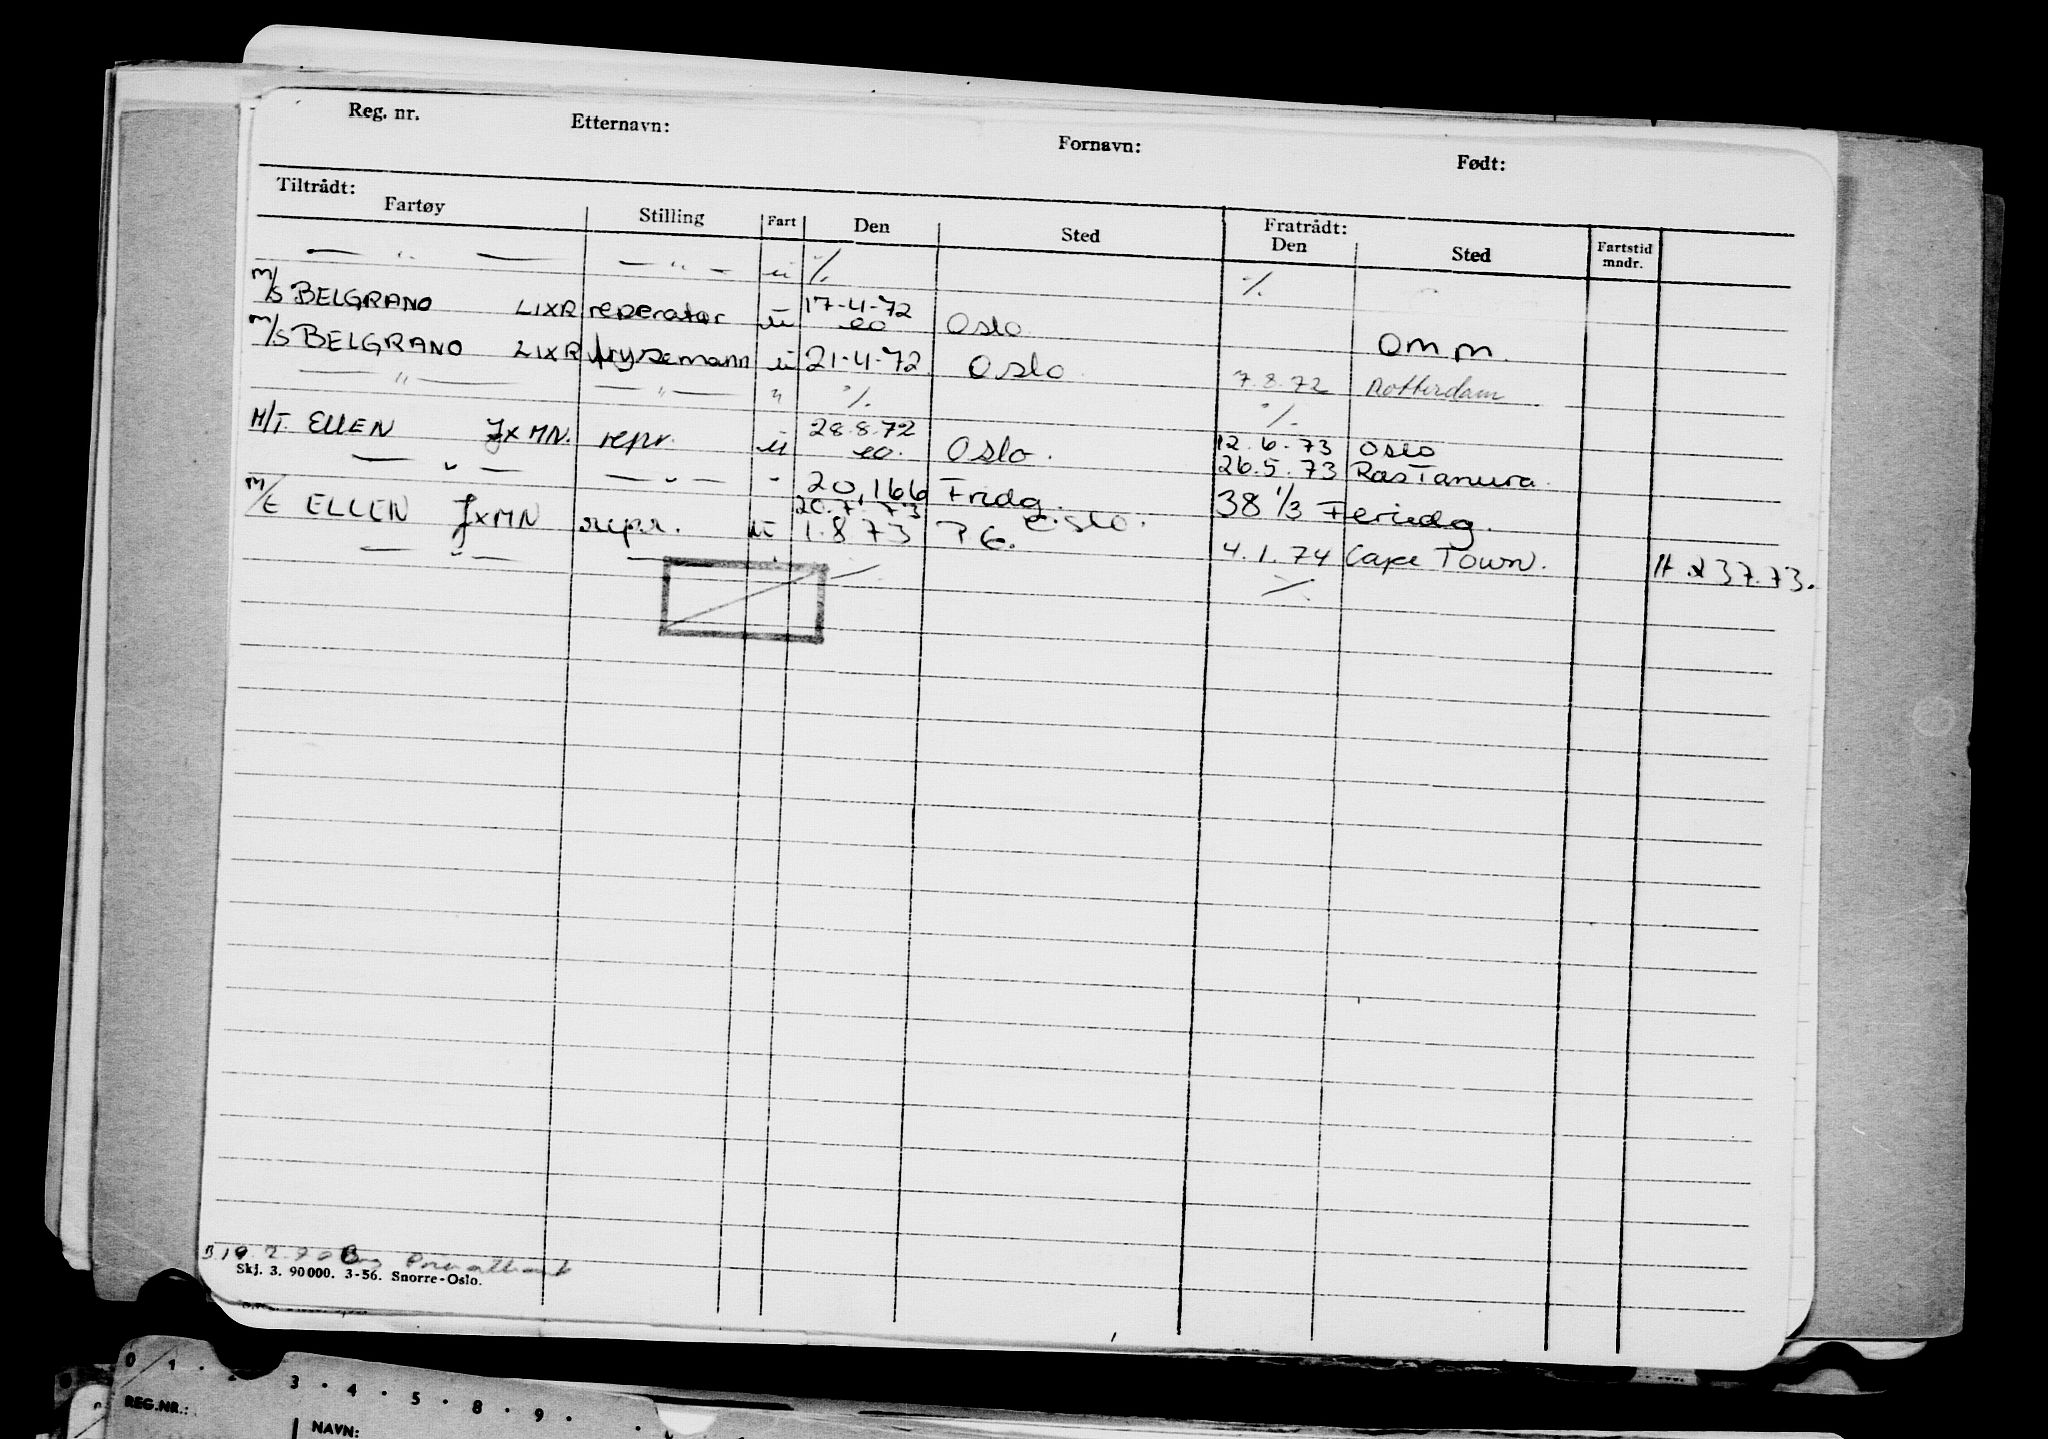 Reg. nr. Etternavn: Fornavn: Født:
Tiltrådt: Fratrådt:
Fartøy Stilling Fart Den Sted Den Sted Fartstid mndr.
— " — — " — u ·/. ·/.
M/S BELGRANO LIXR reperatør u 17-4-72 eo Oslo Omm.
M/S BELGRANO LIXR frysemann u 21-4-72 Oslo 7.8.72 Rotterdam
— " — — " — " ·/. ·/.
M/T ELLEN JXMN. repr. u 28.8.72 eo. Oslo. 12.6.73 Oslo
— " — — " — " 26.5.73 Ras Tanura.
20,166 Fridg. 38 1/3 Feriedg.
M/T ELLEN JXMN repr. u 20.7.73 Oslo.
1.8.73 P.G. 4.1.74 Cape Town. 37.73.
— " — — " ·/. ·/.
Skj. 3. 90000. 3-56. Snorre-Oslo.
0 1 · 2 3 · 4 · 5 · 8 · 9 ·
REG.NR.: NAVN: